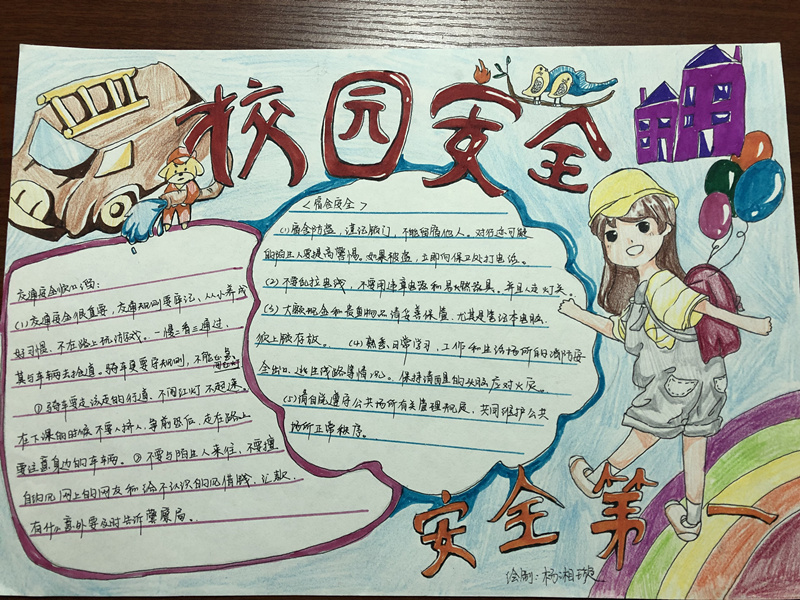 校园安全
<宿舍安全>
(1)宿舍防盗,谨记锁门,不能留宿他人。对行迹可疑
的陌生人要提高警惕。如果被盗,立即向保卫处打电话。
(2)不要乱拉电线,不要用违章电器和易燃器具。并且人走灯关
(3)大额现金和贵重物品请妥善保管,尤其是笔记本电脑
锁上柜存放。 (4)熟悉日常学习,工作和生活场所的消防安
全出口、逃生线路等情况。保持清醒的头脑应对火灾。
(5)请自觉遵守公共场所有关管理规定,共同维护公共
场所正常秩序。
交通安全顺口溜:
(1)交通安全很重要,交通规则要牢记,从小养成
好习惯,不在路上玩游戏。一慢二看三通过,
莫与车辆去抢道。骑车更要守规则,不能心急
①骑车要走该走的行道,不闯红灯不超速。
在下课的时候不要拥人,导前敌后,走在路上
要注意身边的车辆。②不要与陌生人来往,不要擅
自约见网上的网友和给不认识的人借钱、汇款
有什么意外要及时告诉警察局。
安全第一
绘制:杨湘璇